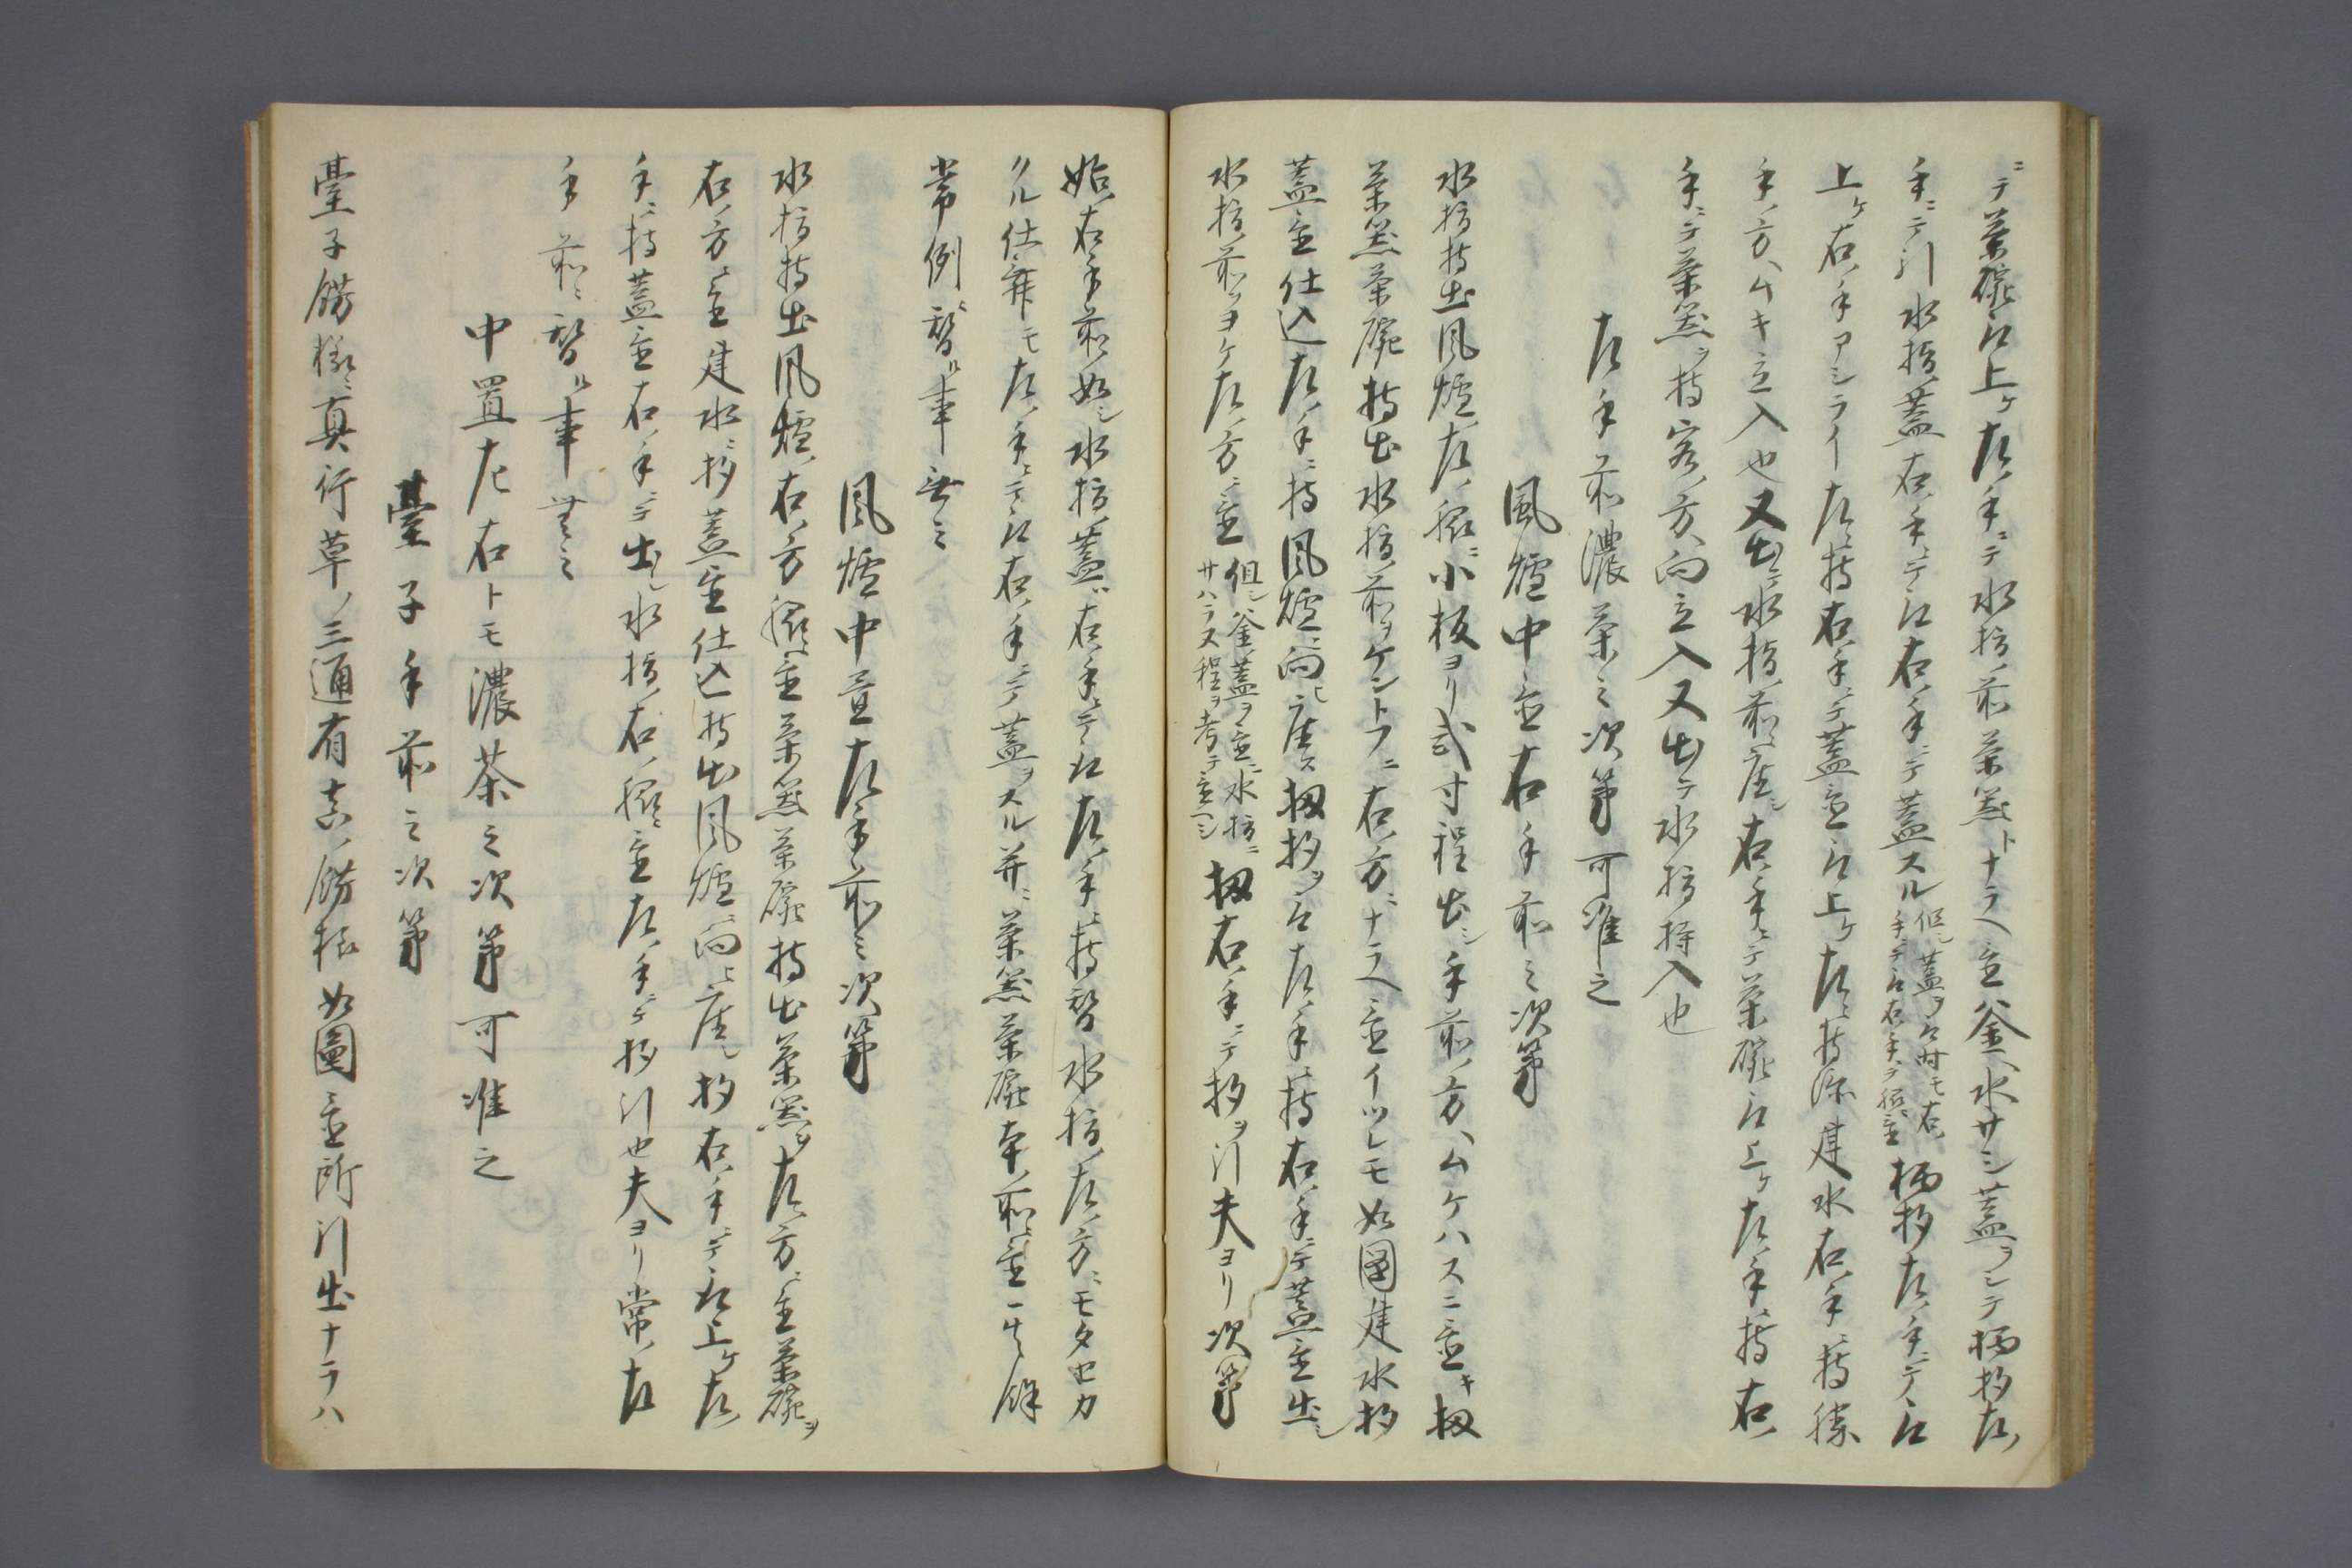 ニテ茶碗取上ケ左ノ手ニテ水指ノ前茶器トナラヘ置釜ヘ水サシ蓋ヲシテ柄杓左ノ
手ニテ引水指ノ蓋右ノ手ニテ取右ノ手ニテ蓋スル
但シ蓋ヲ取時モ右ノ
手ニテ取右ノ手ニテ置
柄杓左ノ手ニテ取
上ケ右ノ手アシライ左ニ持右ノ手ニテ蓋置取上ケ左ニ持建水右ノ手ニ持勝
手ノ方ヘムキ立入也又出テ水指ノ前ニ座シ右ノ手ニテ茶碗取上ケ左ノ手ニ持右ノ
手ニテ茶器ヲ持客ノ方ヘ向立入又出テ水指持入也
左手前濃茶之次第可准之
風爐中置右手前之次第
水指持出風爐ノ左ノ脇ニ小板ヨリ弐寸程出シ手前ノ方ヘムケハスニ置キ扨
茶器茶碗持出水指ノ前ヲケントフニ右ノ方ニナラヘ置イツレモ如圖建水杓
蓋置仕込左ノ手ニ持風爐ニ向ヒ座ス扨杓ヲ取左ノ手ニ持右ノ手ニテ蓋置出シ
水指ノ前ヲヨケ左ノ方ニ置
但シ釜ノ蓋ヲ置ニ水指ニ
サハラヌ程ヲ考テ置ヘシ
扨右ノ手ニテ杓ヲ引夫ヨリ次第
始ノ右手前ノ如シ水指ノ蓋ハ右ノ手ニテ取左ノ手ニ持替水指ノ左ノ方ニモタセカ
クル仕舞モ左ノ手ニテ取右ノ手ニテ蓋ヲスル并ニ茶器茶碗本ノ前ニ置ニ其餘
常ノ例ニ替ル事無之
風爐中置左手前之次第
水指持出風爐ノ右ノ方脇ニ置茶器茶碗持出茶器ヲ左ノ方ニ置茶碗ヲ
右ノ方ニ置建水ニ杓蓋置仕込持出風爐ニ向ヒ座シ杓右ノ手ニテ取上ケ左ノ
手ニ持蓋置右ノ手ニテ出シ水指ノ右ノ脇ニ置左ノ手ニテ杓引也夫ヨリ常ノ左
手前ニ替ル事無之
中置左右トモ濃茶之次第可准之
臺子手前之次第
臺子餝樣ニ真行草ノ三通有真ノ餝樣如圖置所引出ナラハ